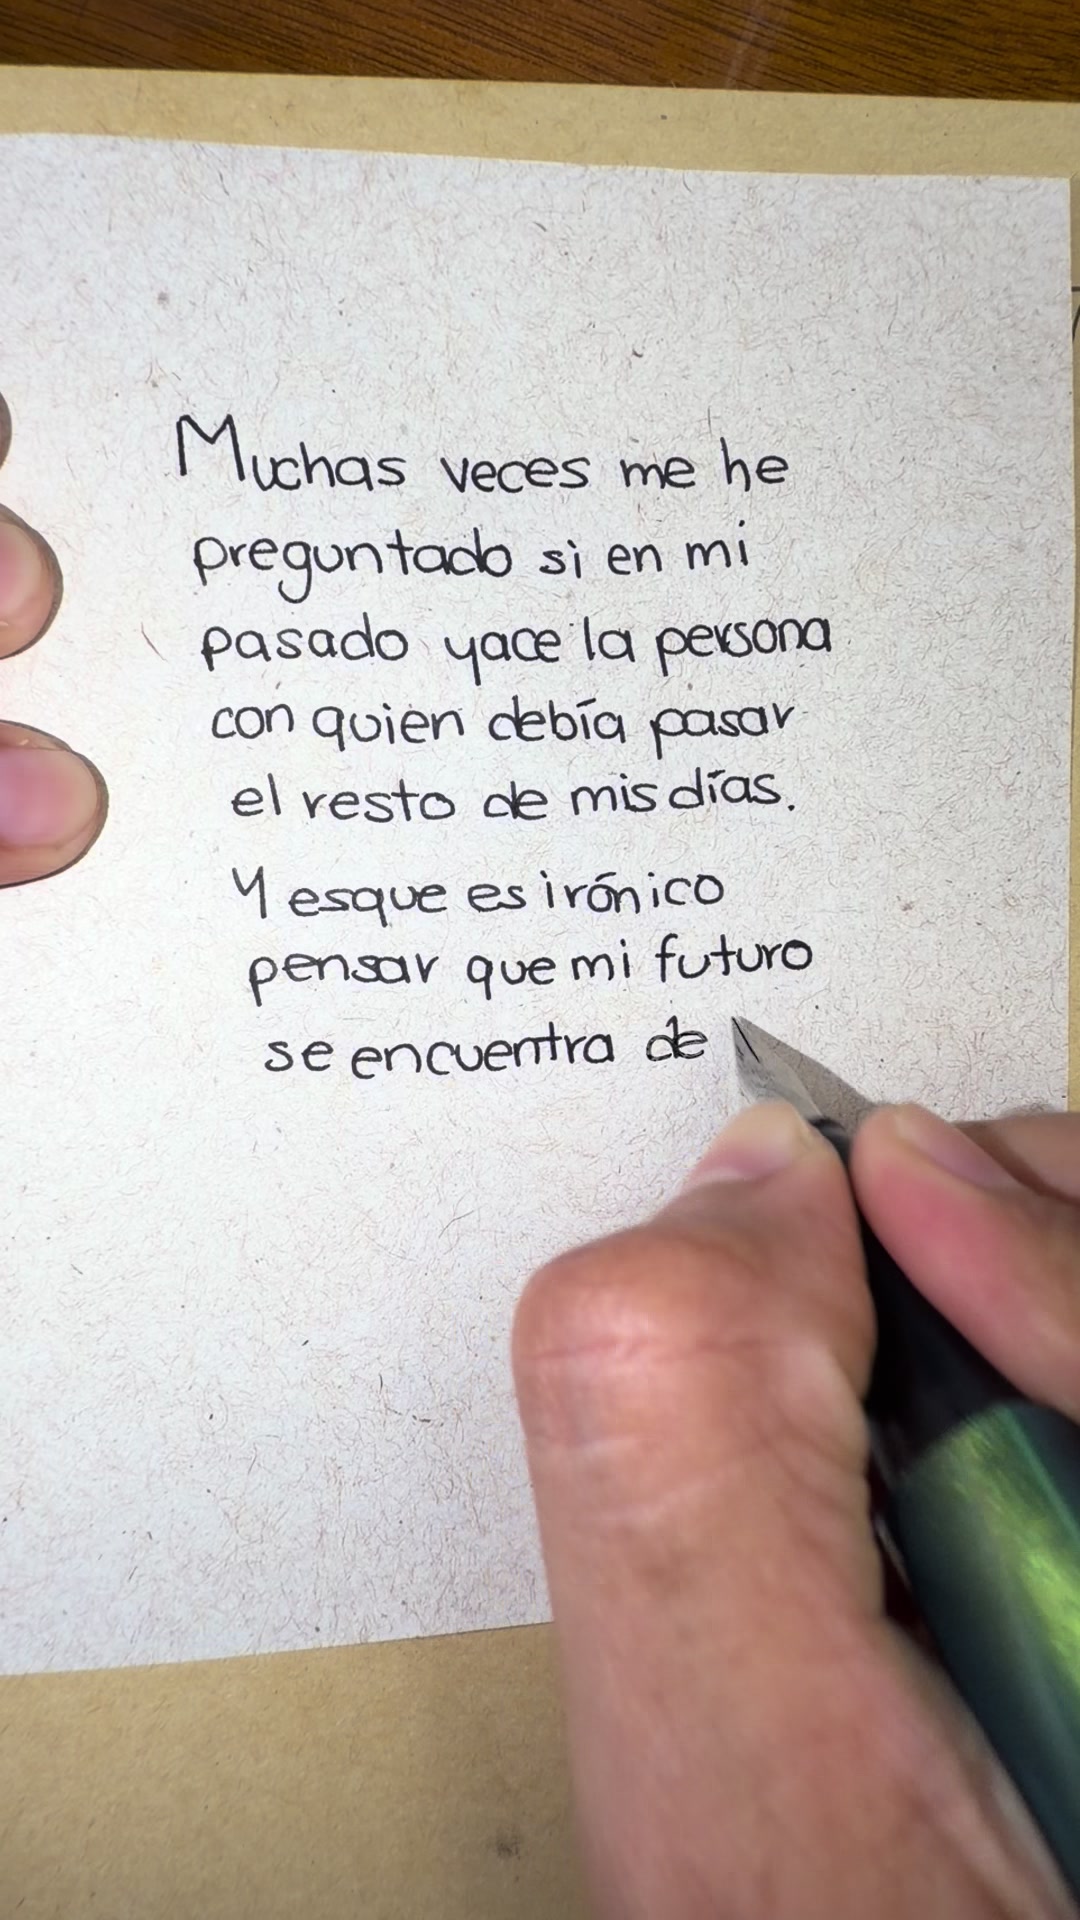 Muchas veces me he
preguntado si en mi
pasado yace la persona
con quien debía pasar
el resto de mis días.
Y esque es irónico
pensar que mi futuro
se encuentra de